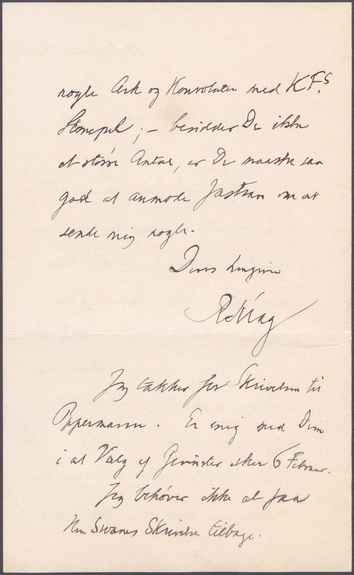 nogle Ark og Konvolutter med K F.s
Stempel; – besidder De ikke
et større Antal, er De maaske saa
god at anmode Jastrau om at
sende mig nogle.
Deres hengivne
R Krag
Jeg takker for Skrivelsen til
Peppermann. Er enig med Dem
i at Valg af Kvinder sker 6 Februar.
Jeg behøver ikke at faa
Hr Swanes Skrivelse tilbage.